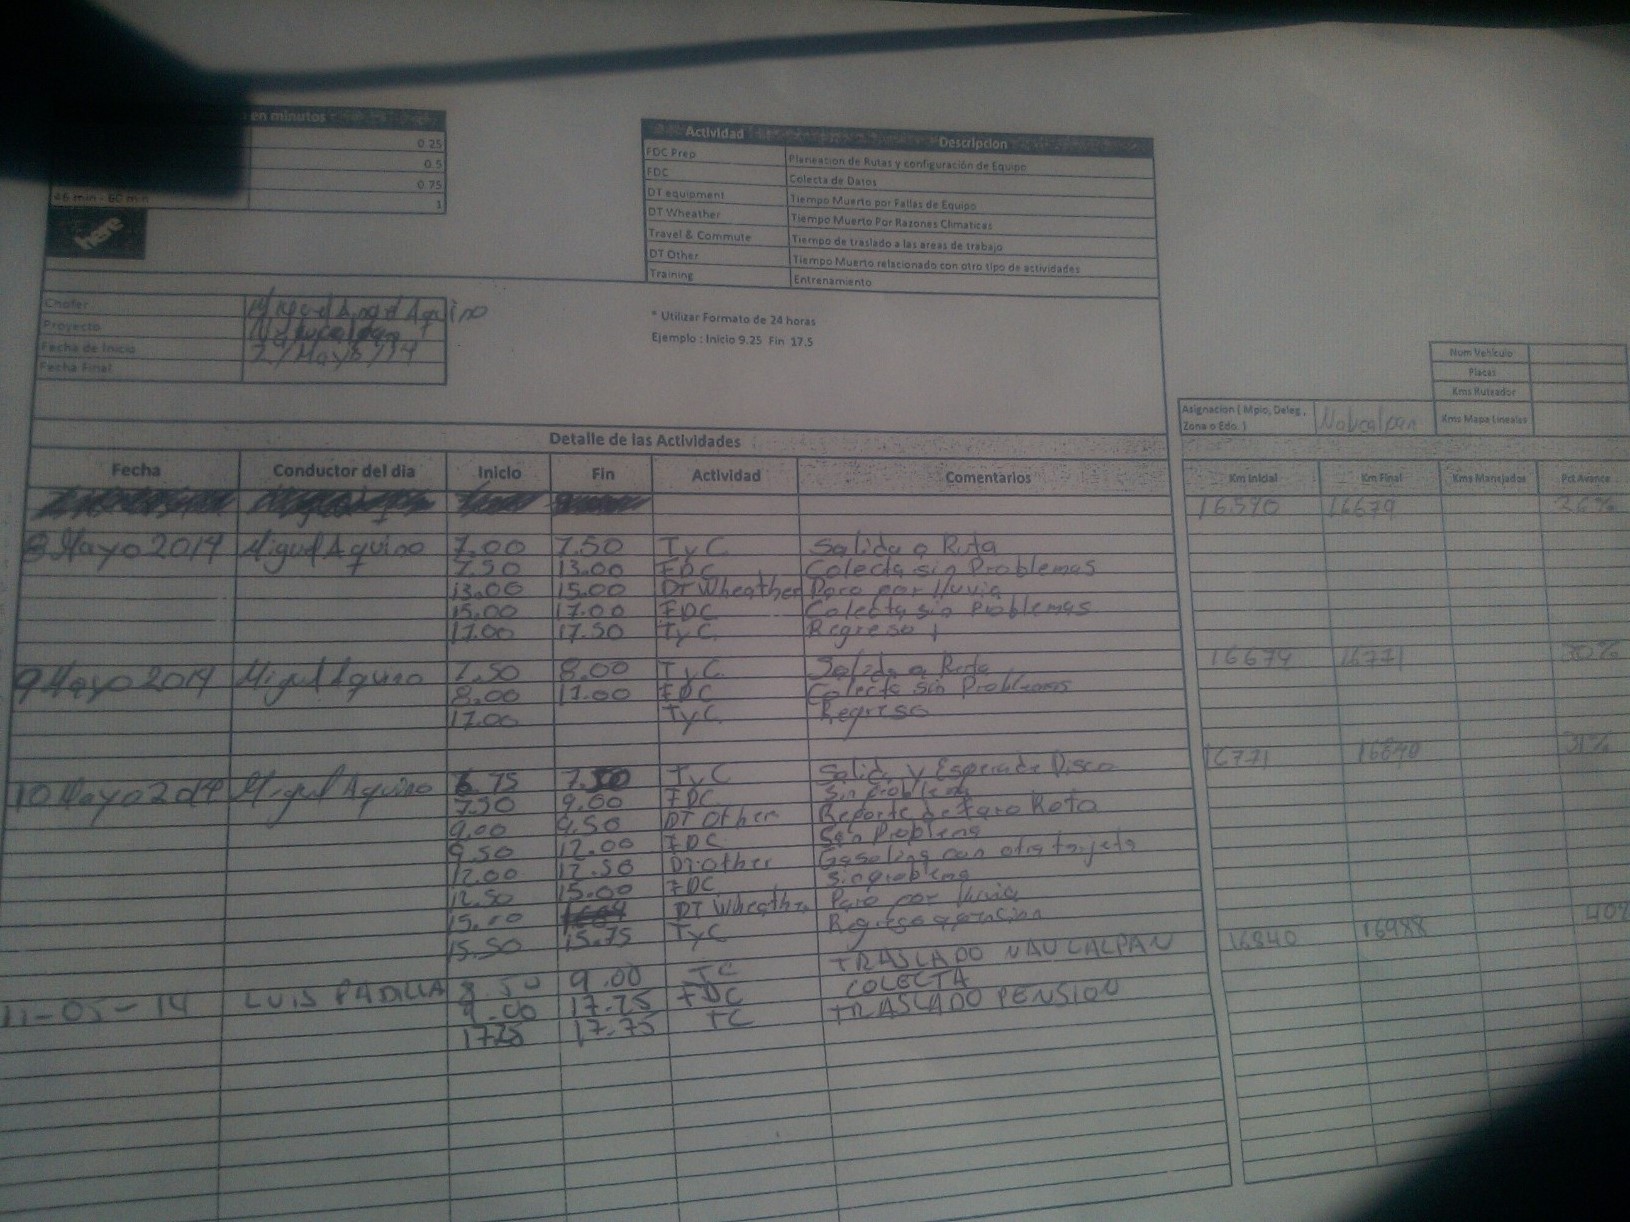 en minutos
0.25
0.5
0.75
46 min - 60 min 1
here
Actividad Descripcion
FDC Prep Planeation de Rutas y configuración de Equipo
FDC Colecta de Datos
DT equipment Tiempo Muerto por Fallas de Equipo
DT Wheather Tiempo Muerto Por Razones Climaticas
Travel & Commute Tiempo de traslado a las areas de trabajo
DT Other Tiempo Muerto relacionado con otro tipo de actividades
Training Entrenamiento
Chofer Miguel Angel Aquino
Proyecto Naucalpan
Fecha de Inicio Mayo / 14
Fecha Final
* Utilizar Formato de 24 horas
Ejemplo : Inicio 9.25 Fin 17.5
Num Vehiculo
Placas
Kms Ruteador
Kms Mapa Lineales
Asignacion ( Mpio, Deleg , Zona o Edo. ) Naucalpan
Detalle de las Actividades
Fecha Conductor del dia Inicio Fin Actividad Comentarios Km Inicial Km Final Kms Manejados Pct Avance
16590 16679 26%
8 Mayo 2014 Miguel Aquino 7.00 7.50 TyC Salida a Ruta
7.50 13.00 FDC Colecta sin Problemas
13.00 15.00 DT Wheather Paro por lluvia
15.00 17.00 FDC Colecta sin Problemas
17.00 17.50 TyC Regreso
16679 16771 30%
9 Mayo 2014 Miguel Aquino 7.50 8.00 TyC Salida a Ruta
8.00 17.00 FDC Colecta sin Problemas
17.00 TyC Regreso
16771 16840 31%
10 Mayo 2014 Miguel Aquino 6.75 7.50 TyC Salida y Espera de Disco
7.50 9.00 FDC Sin problema
9.00 9.50 DT Other Reporte de Faro Roto
9.50 12.00 FDC Sin Problema
12.00 12.50 DT other Gasolina con otra tarjeta
12.50 15.00 FDC Sin problema
15.00 DT Wheather Paro por lluvia
15.50 15.75 TyC Regreso a pension
16840 16988 40%
11-05-14 LUIS PADILLA 8.50 9.00 TC TRASLADO NAUCALPAN
9.00 17.25 FDC COLECTA
17.25 17.75 TC TRASLADO PENSION